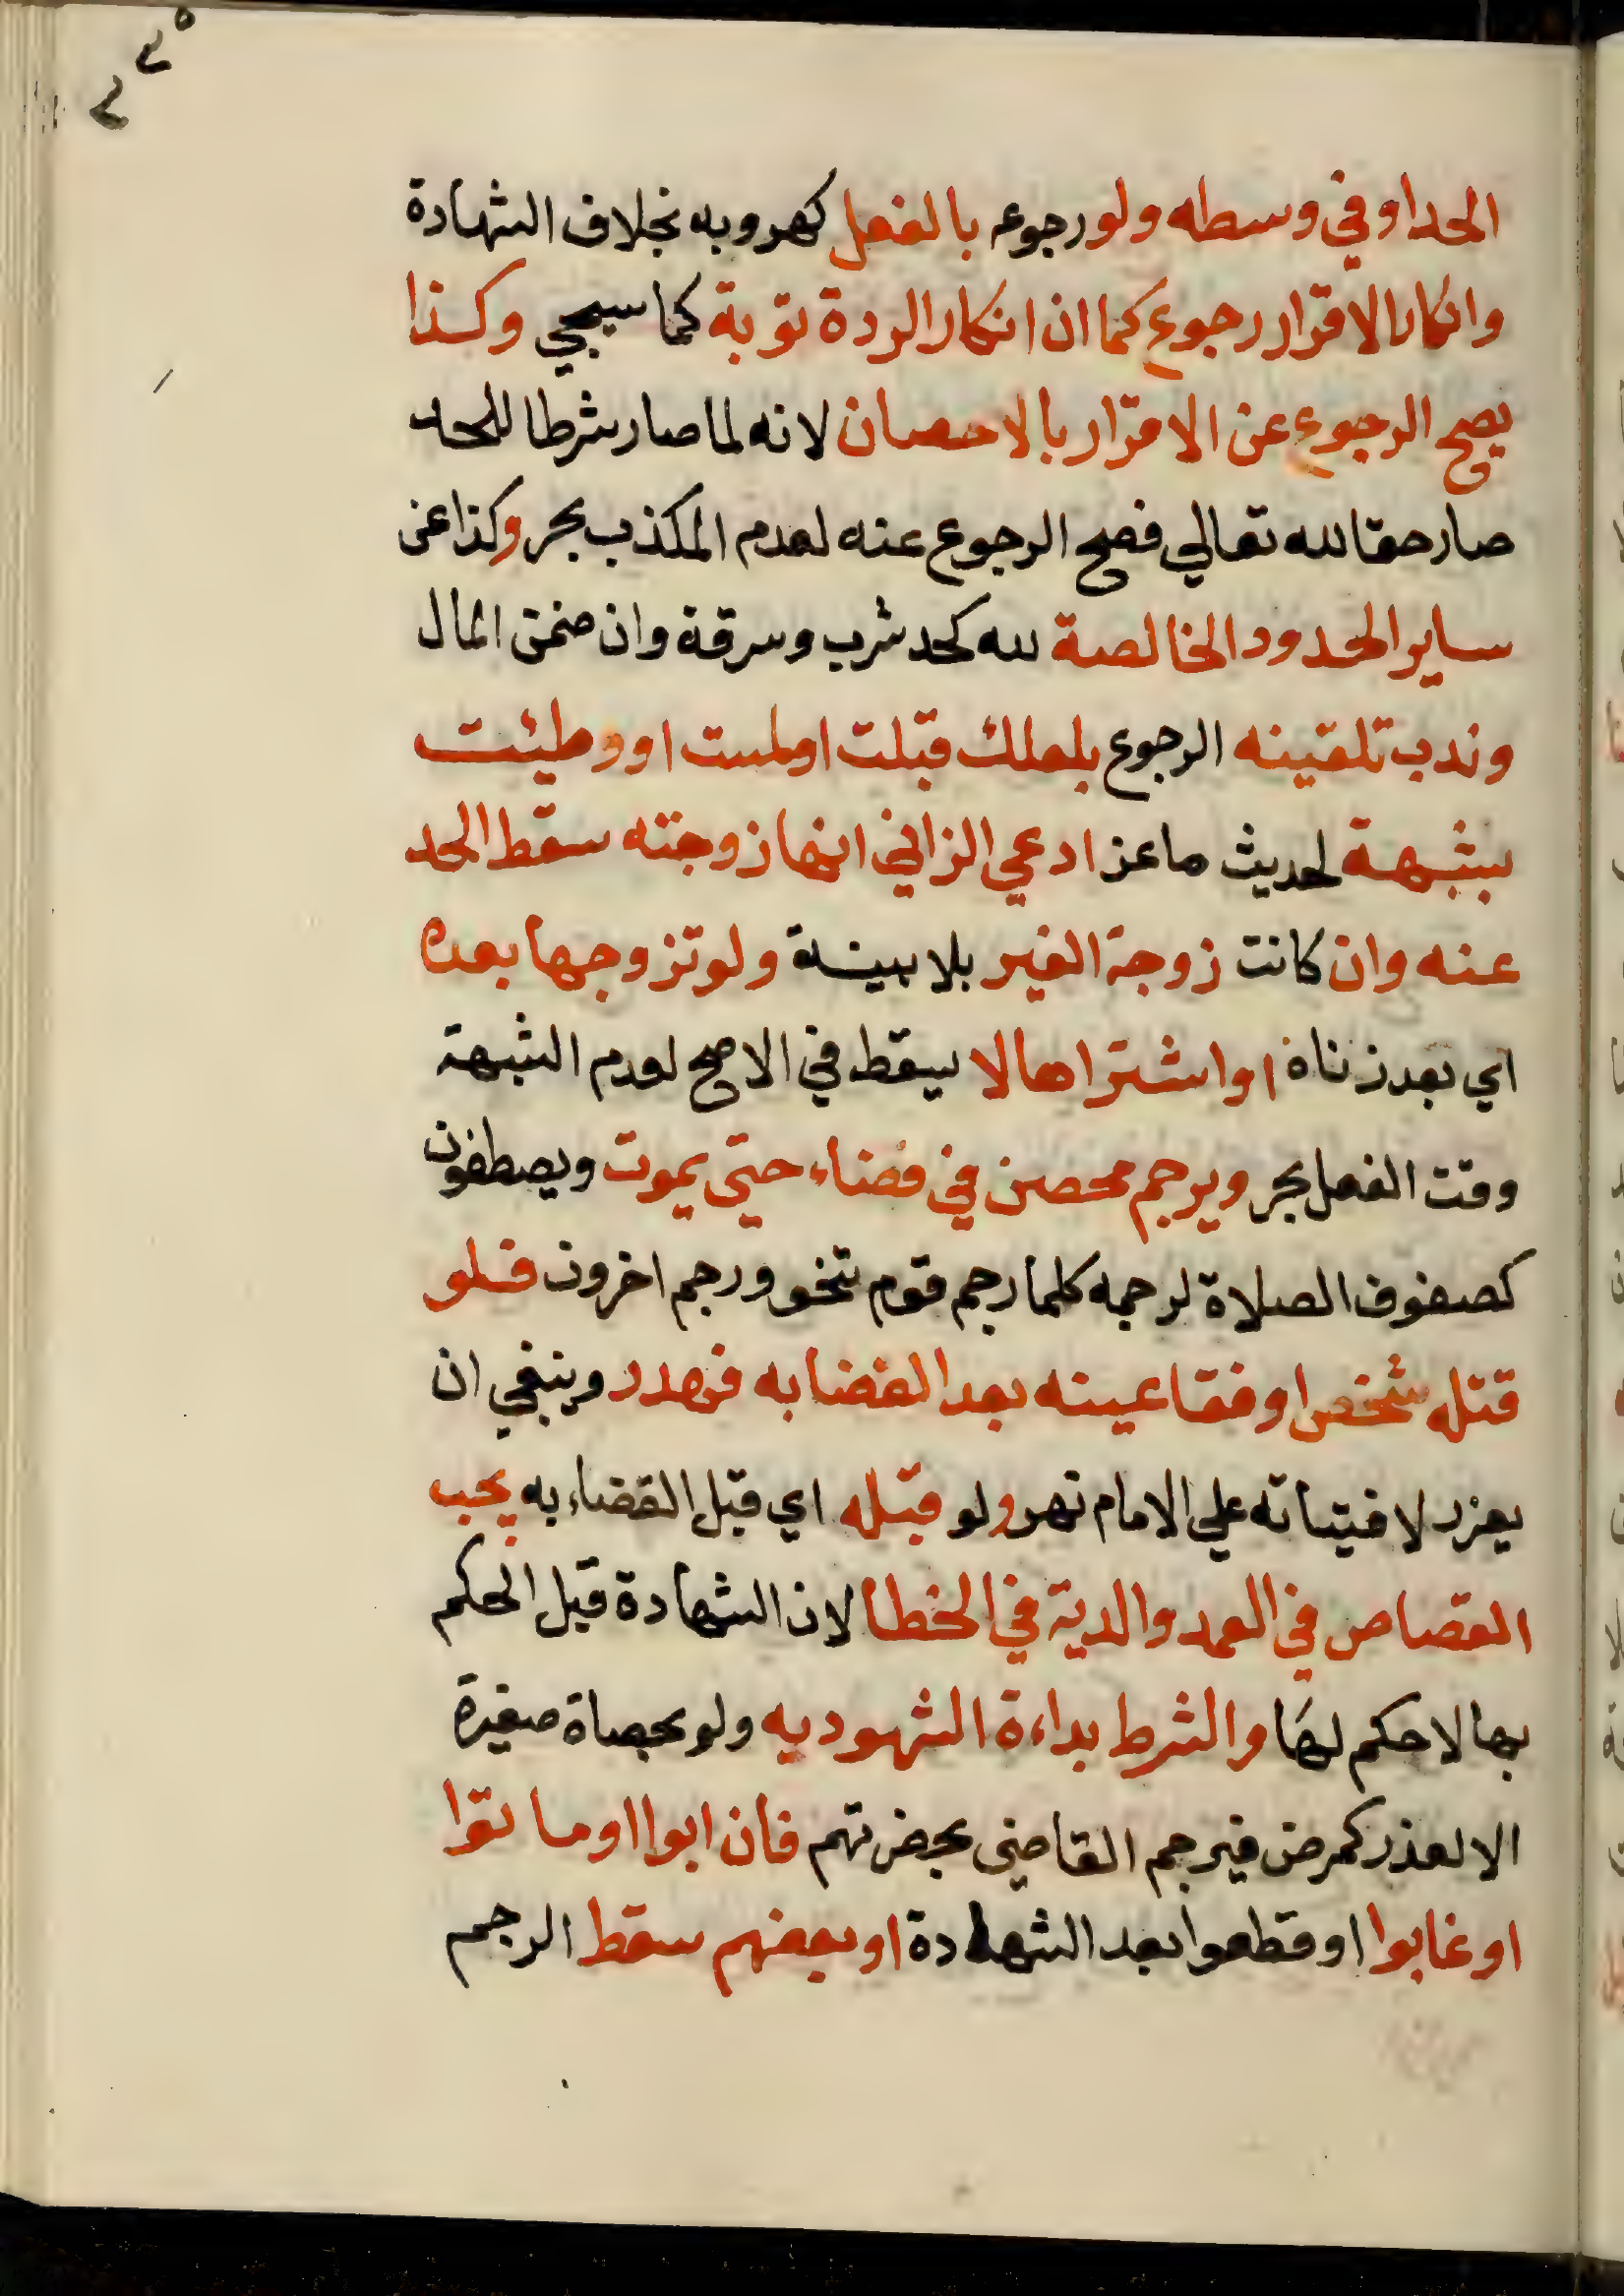 ٢٢٥
الحد او في وسطه ولو رجوعه بالفعل كهروبه بخلاف الشهادة
وانكار الاقرار رجوع كما ان انكار الردة توبة كما سيجي وكذا
يصح الرجوع عن الاقرار بالاحصان لانه لما صار شرطا للحد
صار حقا لله تعالي فصح الرجوع عنه لعدم المكذب بحر وكذا عن
ساير الحدود الخالصة لله كحد شرب وسرقة وان ضمن المال
وندب تلقينه الرجوع بلعلك قبلت او لمست او وطيئت
بشبهة لحديث ماعز ادعي الزاني انها زوجته سقط الحد
عنه وان كانت زوجة الغير بلا بينة ولو تزوجها بعده
اي بعد زناه او اشتراها لا يسقط في الاصح لعدم الشبهة
وقت الفعل بحر ويرجم محصن في فضاء حتي يموت ويصطفون
كصفوف الصلاة لرجمه كلما رجم قوم تنحو ورجم اخرون فلو
قتله شخص او فقا عينه بعد القضا به فهدر وينبغي ان
يعزر لافتياته علي الامام نهر ولو قبله اي قبل القضاء به يجب
القصاص في العمد والدية في الخطا لان الشهادة قبل الحكم
بها لا حكم لها والشرط بداءة الشهود به ولو بحصاة صغيرة
الا لعذر كمرض فيرجم القاضي بحضرتهم فان ابوا او ماتوا
او غابوا او قطعوا بعد الشهادة او بعضهم سقط الرجم